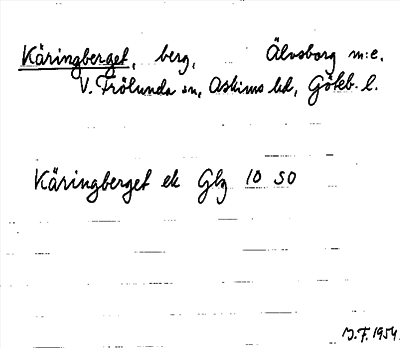 Käringberget, berg, Älvsborg m:e.
V. Frölunda sn, Askims hd, Göteb. l.
Käringberget ek Glg 10 SO
J.F. 1954.